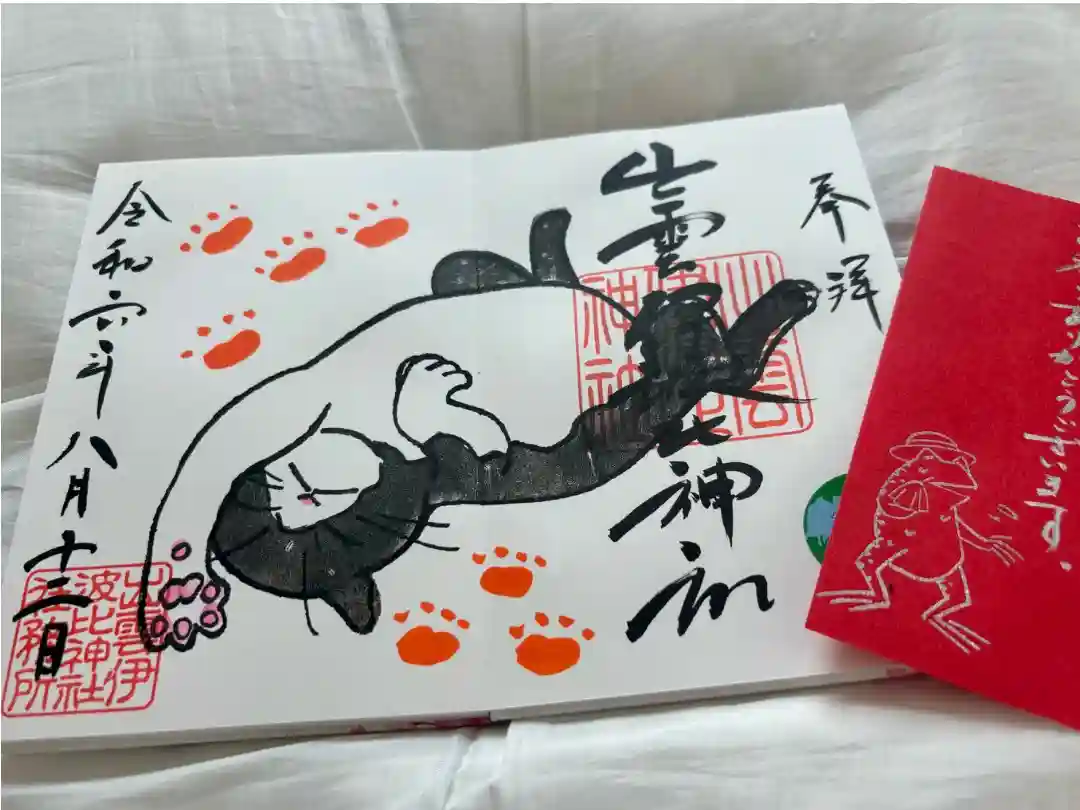 奉拝
出雲伊波比神社
出雲
神社
令和六年八月十二日
出雲伊
波比神社
社務所
ございます。